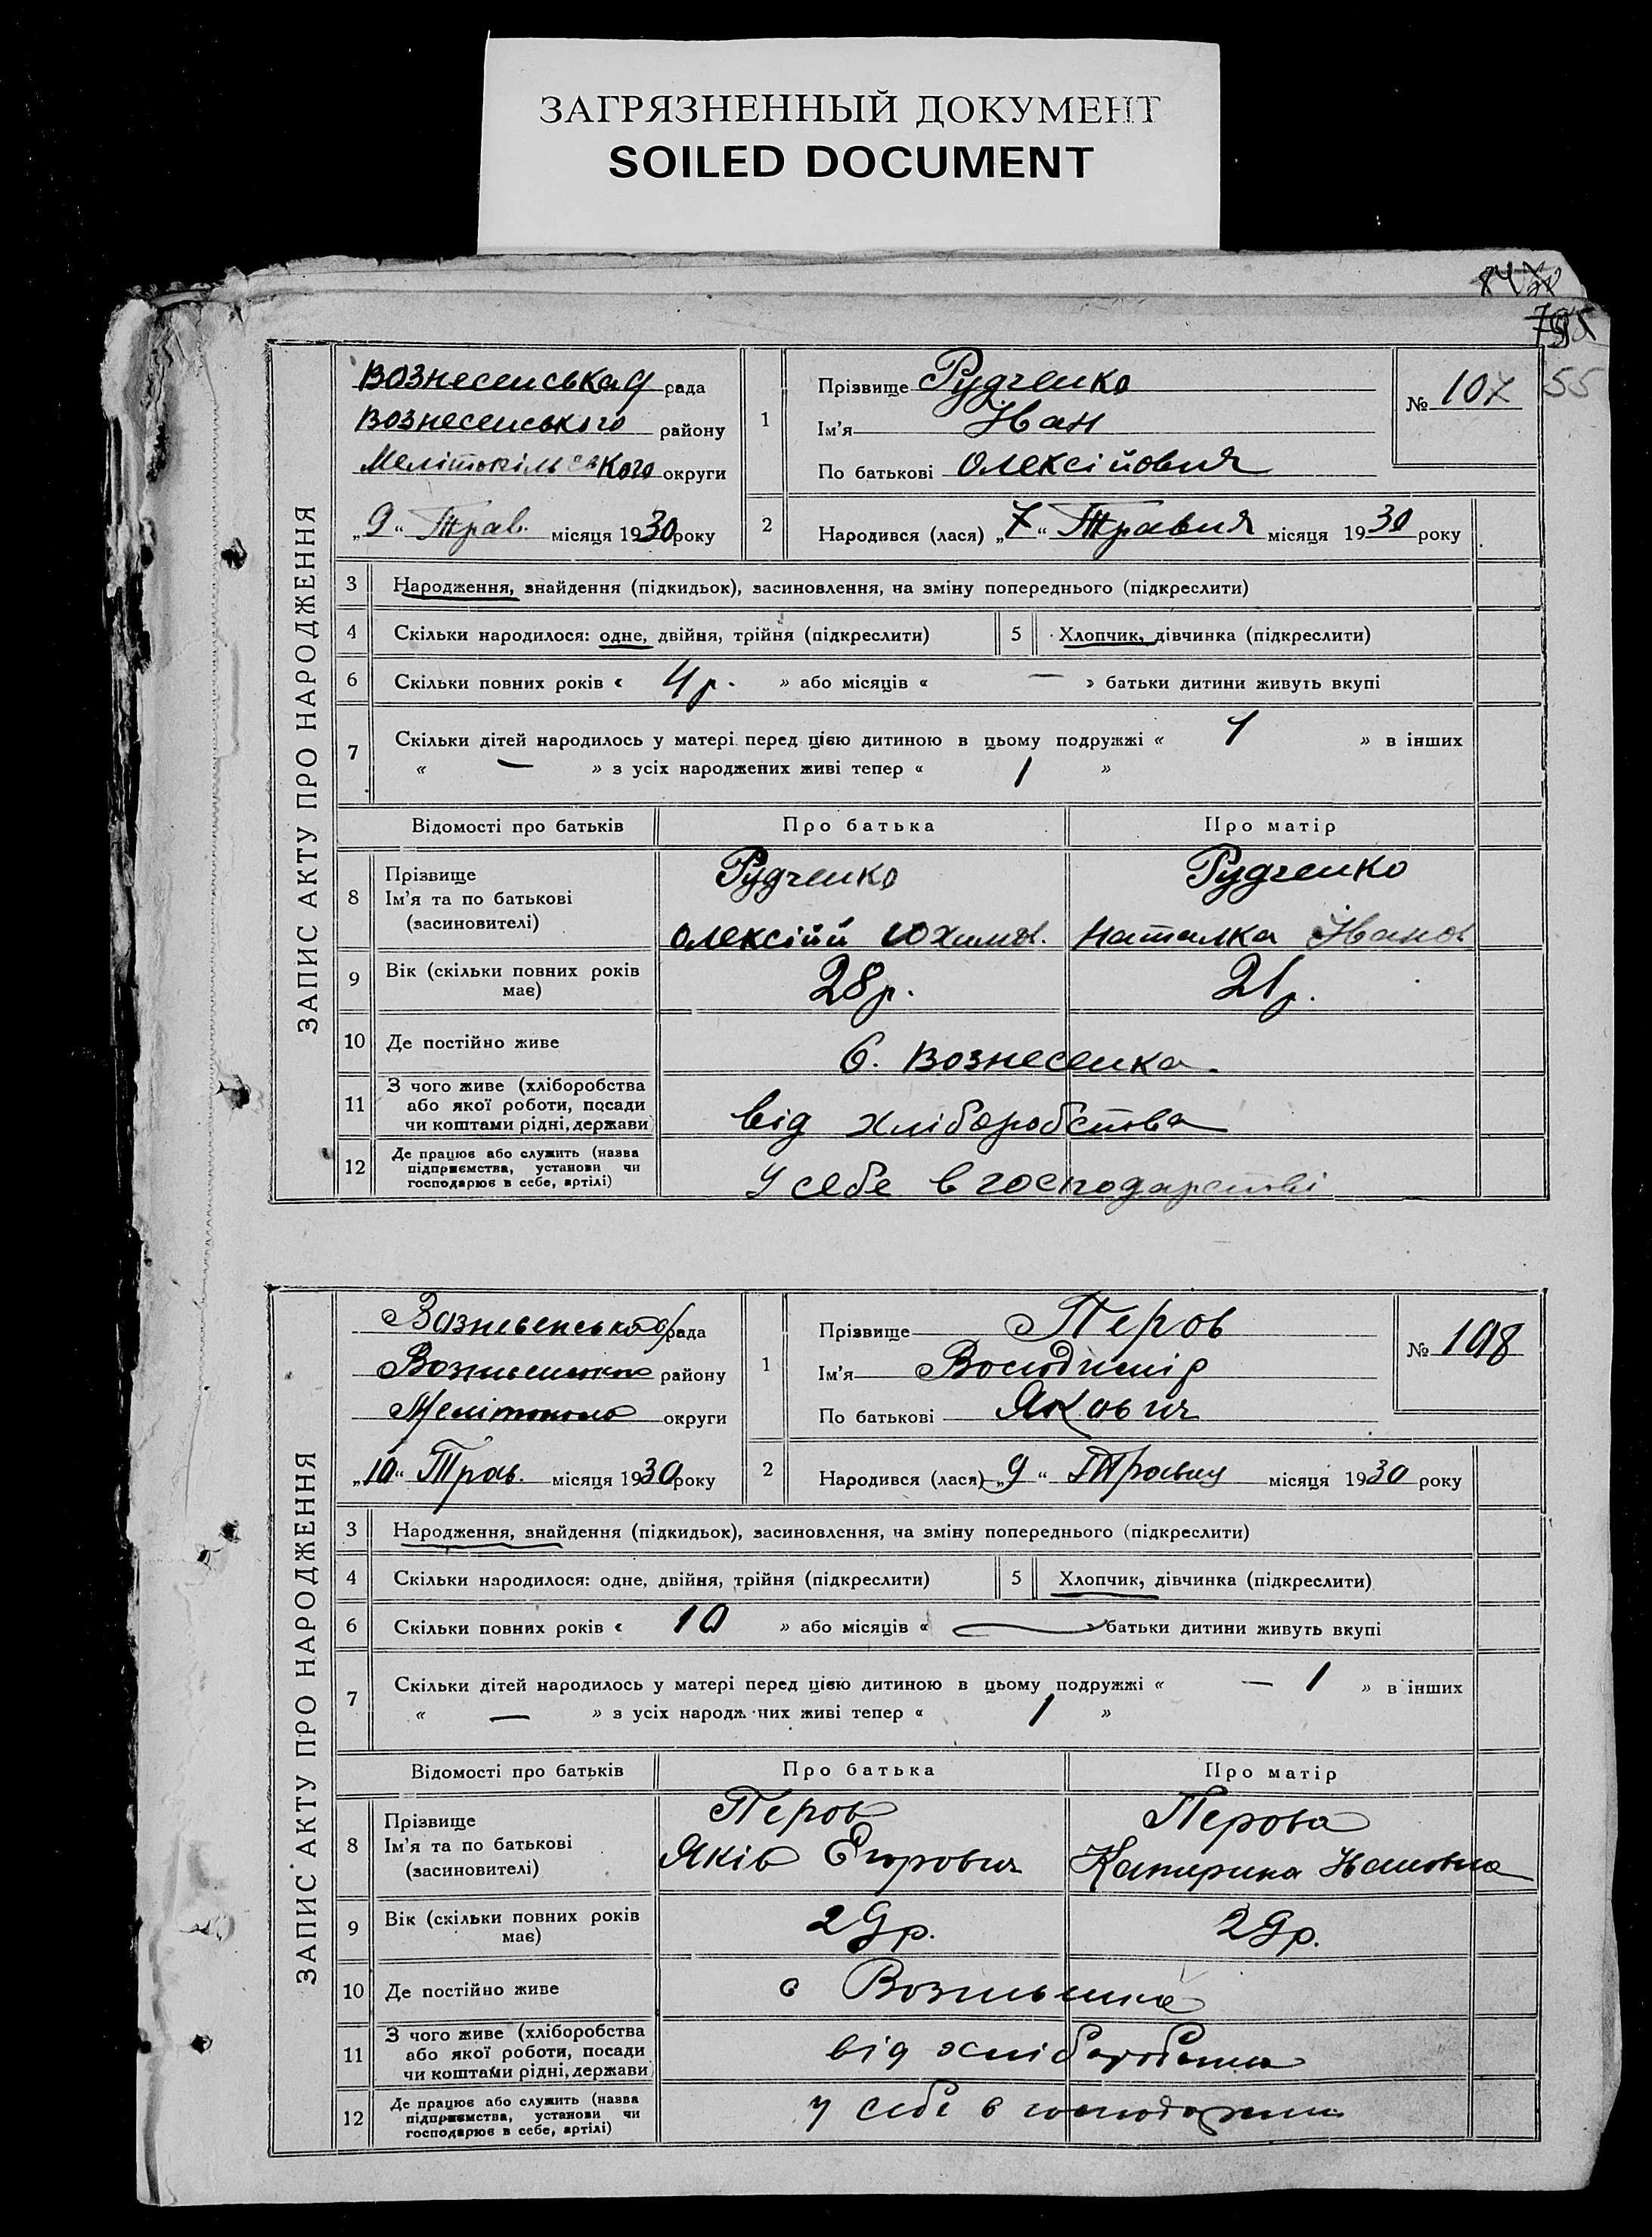 ЗАГРЯЗНЕННЫЙ ДОКУМЕНТ
SOILED DOCUMENT
55
ЗАПИС АКТУ ПРО НАРОДЖЕННЯ
Вознесенська рада
Вознесенського району
Мелітопільського округи
„9“ Трав. місяця 1930 року
1
Прізвище Рудченко
Ім'я Іван
По батькові Олексійович
№ 107
2
Народився (лася) „7“ Травня місяця 1930 року
3 Народження, знайдення (підкидьок), засиновлення, на зміну попереднього (підкреслити)
4 Скільки народилося: одне, двійня, трійня (підкреслити)
5 Хлопчик, дівчинка (підкреслити)
6 Скільки повних років « 4 р. » або місяців « — » батьки дитини живуть вкупі
7 Скільки дітей народилось у матері перед цією дитиною в цьому подружжі « 1 » в інших
« — » з усіх народжених живі тепер « 1 »
Відомості про батьків Про батька Про матір
8 Прізвище Рудченко Рудченко
Ім'я та по батькові
(засиновителі) Олексій Юхимов. Наталка Іванов
9 Вік (скільки повних років має) 28 р. 21 р.
10 Де постійно живе С. Вознесенка
11 З чого живе (хліборобства
або якої роботи, посади
чи коштами рідні, держави від хліборобства
12 Де працює або служить (назва
підприємства, установи чи
господарює в себе, артілі) У себе в господарстві
ЗАПИС АКТУ ПРО НАРОДЖЕННЯ
рада
району
округи
„10“ Трав. місяця 1930 року
1
Прізвище Перов
Ім'я Володимір
По батькові Якович
№ 108
2
Народився (лася) „9“ Травня місяця 1930 року
3 Народження, знайдення (підкидьок), засиновлення, на зміну попереднього (підкреслити)
4 Скільки народилося: одне, двійня, трійня (підкреслити)
5 Хлопчик, дівчинка (підкреслити)
6 Скільки повних років « 10 » або місяців « — » батьки дитини живуть вкупі
7 Скільки дітей народилось у матері перед цією дитиною в цьому подружжі « — 1 » в інших
« — » з усіх народж них живі тепер « 1 »
Відомості про батьків Про батька Про матір
8 Прізвище Перов Перова
Ім'я та по батькові Яків Егорович Катирина
(засиновителі)
9 Вік (скільки повних років має) 29 р. 29 р.
10 Де постійно живе с
11 З чого живе (хліборобства
або якої роботи, посади
чи коштами рідні, держави від
12 Де працює або служить (назва
підприємства, установи чи
господарює в себе, артілі) у себе в